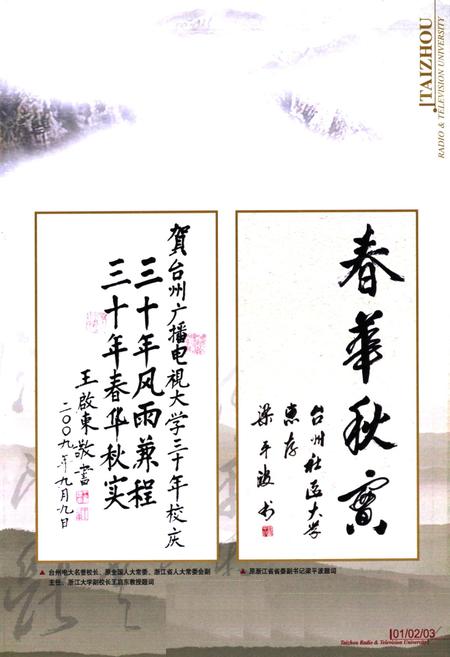 TAIZHOU
RADIO & TELEVISION UNIVERSITY
春華秋實
台州社区大学
惠存
梁平波书
賀台州广播电視大学三十年校庆
三十年风雨兼程
三十年春华秋实
王啟東敬書
二00九年九月九日
▲ 台州电大名誉校长、原全国人大常委、浙江省人大常委会副
主任、浙江大学副校长王启东教授题词
▲ 原浙江省省委副书记梁平波题词
01/02/03
Taizhou Radio & Television University